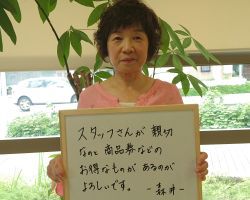 スタッフさんが 親切
なのと 商品券などの
お得なものが あるのが
よろしいです。 -森井-